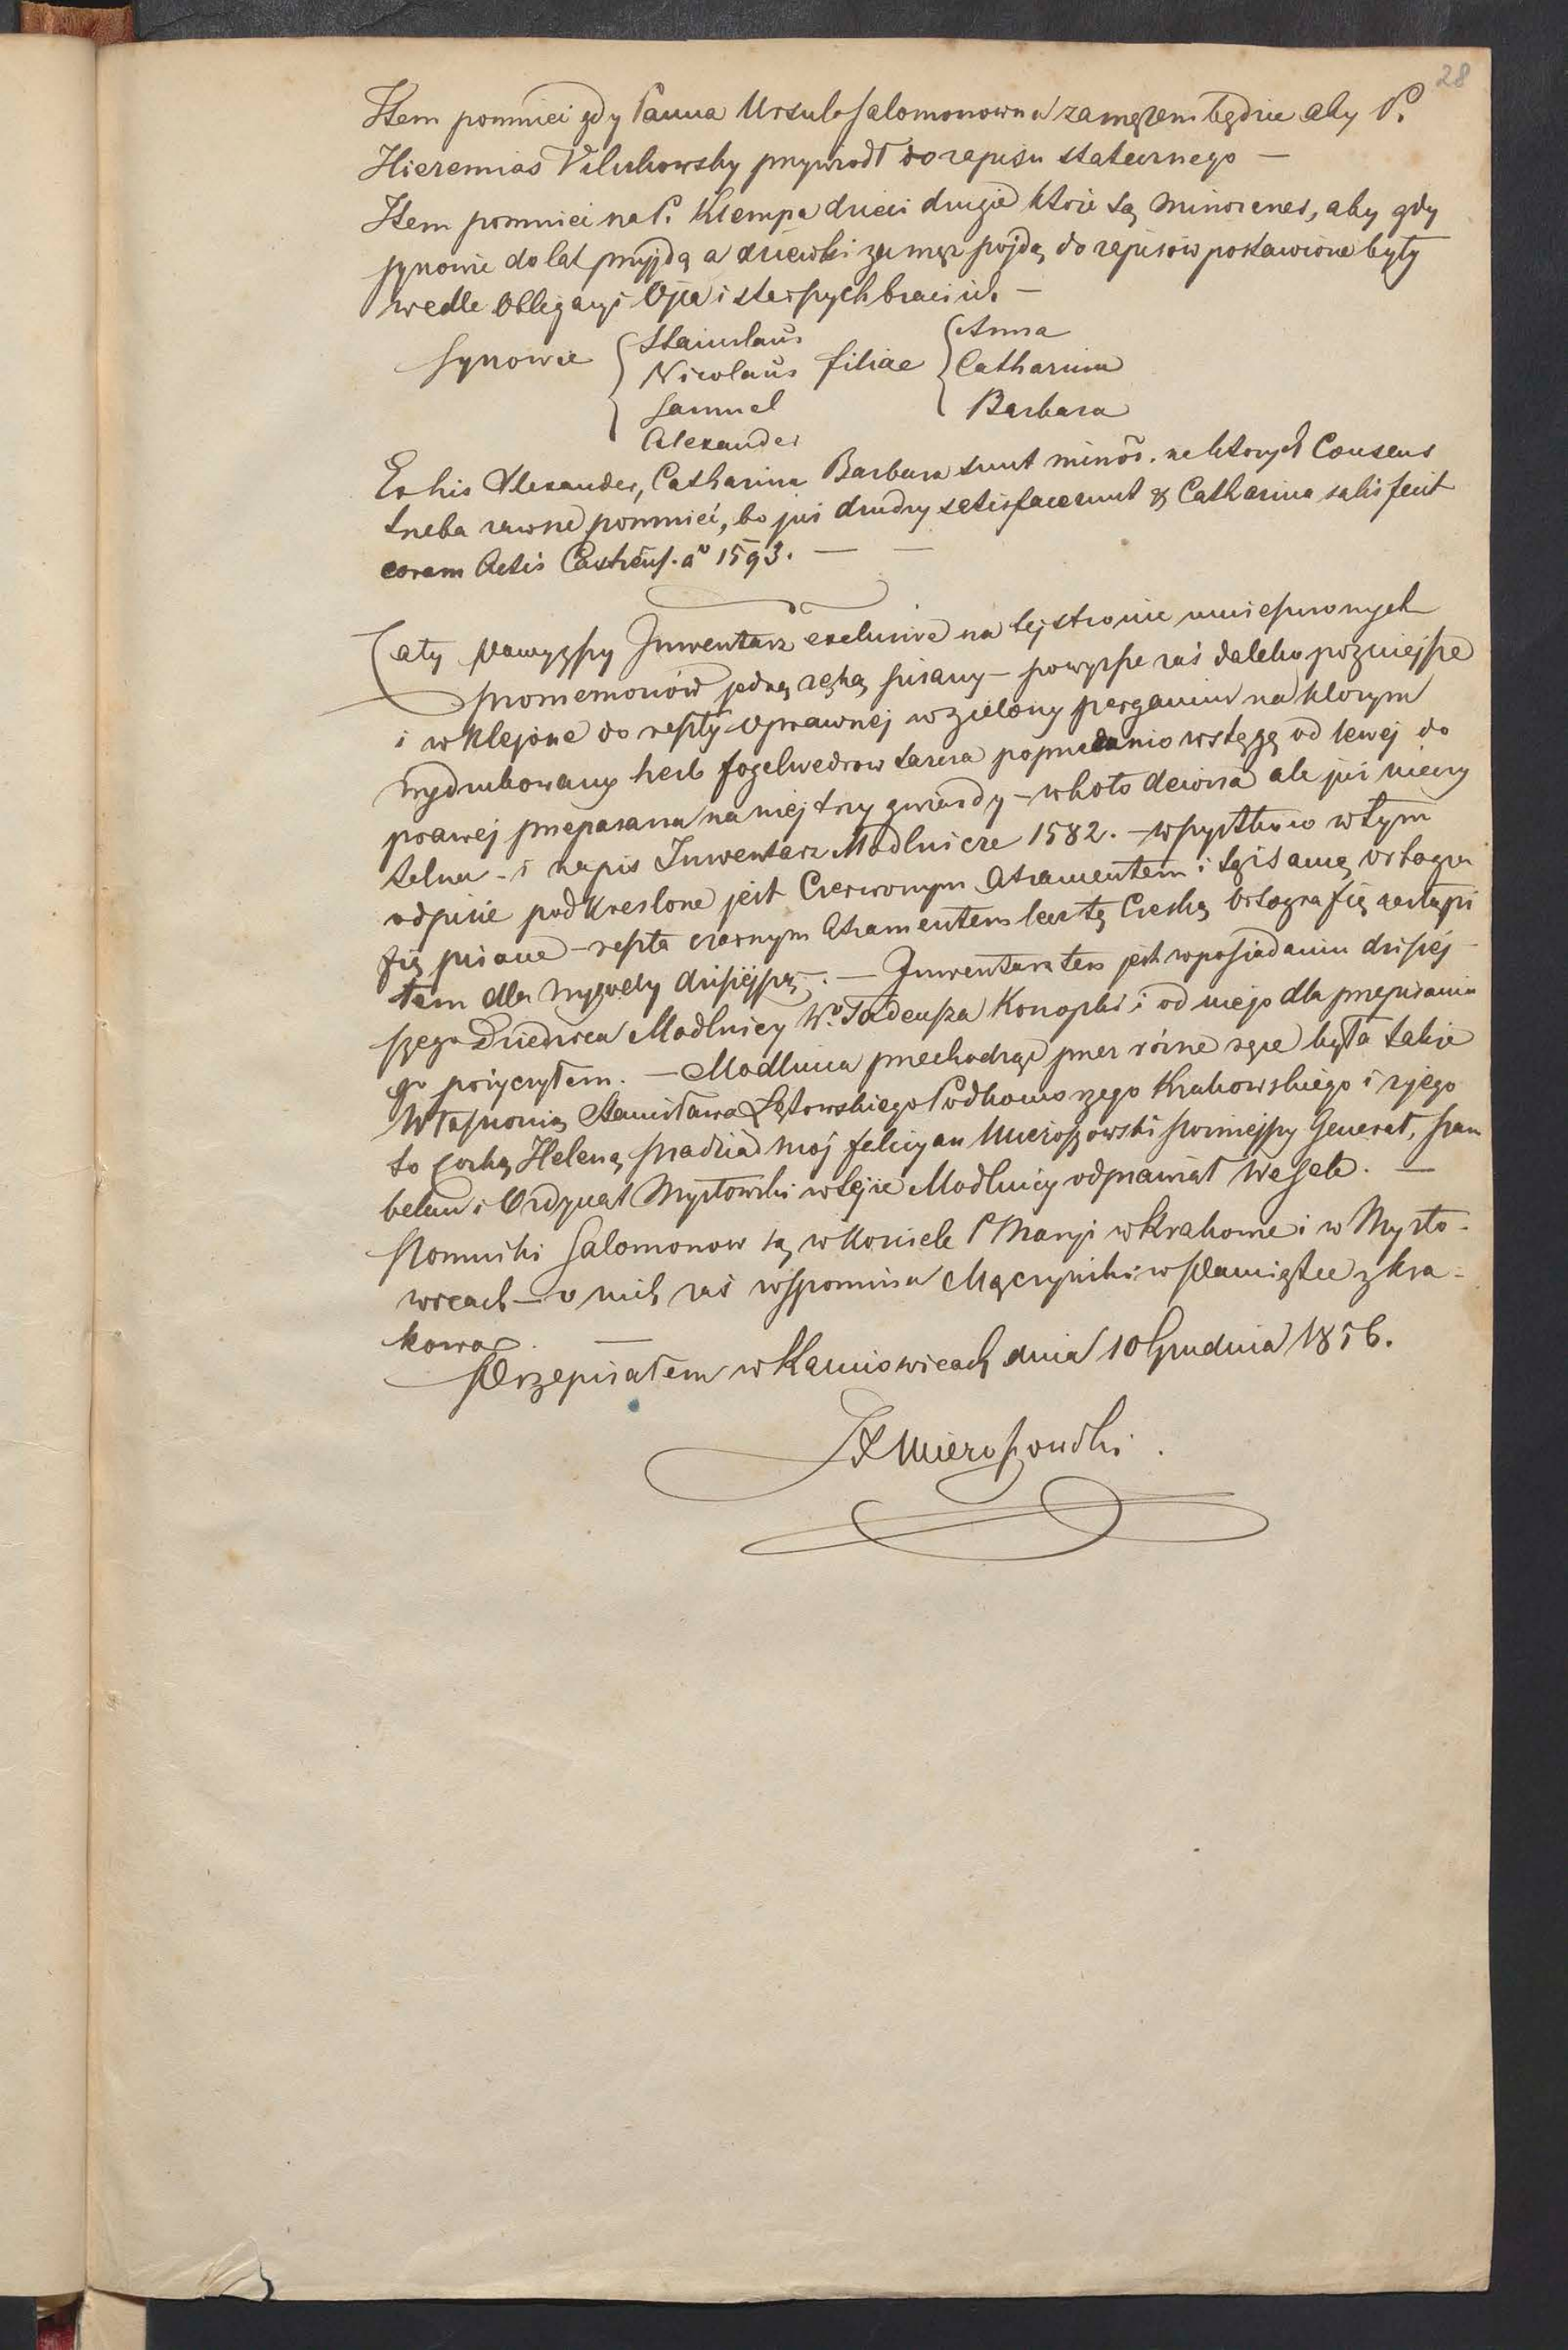 28
Item pomnieć gdy Panna Ursula Salomonowna zamężem będzie aby P.
Hieremias Vilukowsky przywiodł do zapisu statecznego —
Item pomnieć na P. Klempa dzieci drugie które są minorenes, aby gdy
synowie do lat przyjdą a dziewki zamęz pojdą do zapisów postawione były
wedle obligacyi Ojca i starszych braci ich. —
Synowie { Stanislaus filiae { Anna
Nicolaus Catharina
Samuel Barbara
Alexander
Ex his Alexander, Catharina Barbara sunt minōr. na ktorych Consens
trzeba zawsze pomnieć, bo już drudzy satisfacerunt & Catharina satisfecit
coram Actis Castrens. aº 1593. — —
Cały Powyższy Inwentarz exclusive na tej stronie umieszczonych
promemoriów jedną ręką pisany — powyższe zaś daleko pozniejsze
i wklejone do reszty oprawnej w zielony pergamin na ktorym
wydrukowany herb fogelwedrow tarcza poprzedanio wstęgą od lewej do
prawej przepasana na niej trzy gwiazdy — w koło dewiza ale już nieczy
telna — i napis Inwentarz Modlnicze 1582. — wszystko co w tym
odpisie podkreslone jest Czerwonym Atramentem i tąż samą ortogra
fią pisane — reszta czarnym Atramentem lecz tę Czeską ortografię zastąpi
łem dla wygody dzisiéjszą. — Inwentarz ten jest w posiadaniu dzisiéj-
szego Dziedzica Modlnicy Wº Tadeusza Konopki i od niego dla przepisania
go pożyczyłem. — Modlnica przechodząc przez różne ręce była także
Własnością Stanisława Łętowskiego Podkomorzego Krakowskiego i z jego
to Corką Heleną pradziad moj felicyan Mieroszowski pozniejszy Generał, szam
belan i Ordynat Mysłowski w tejże Modlnicy odprawiał Wesele. —
Pomniki Salomonow są w Kościele P Maryi w Krakowie i w Mysło-
wicach — o nich zaś wspomina Mączyński w Pamiątce z Kra-
kowa. —
Przepisałem w Karniowicach dnia 10 Grudnia 1856.
Mieroszowski.